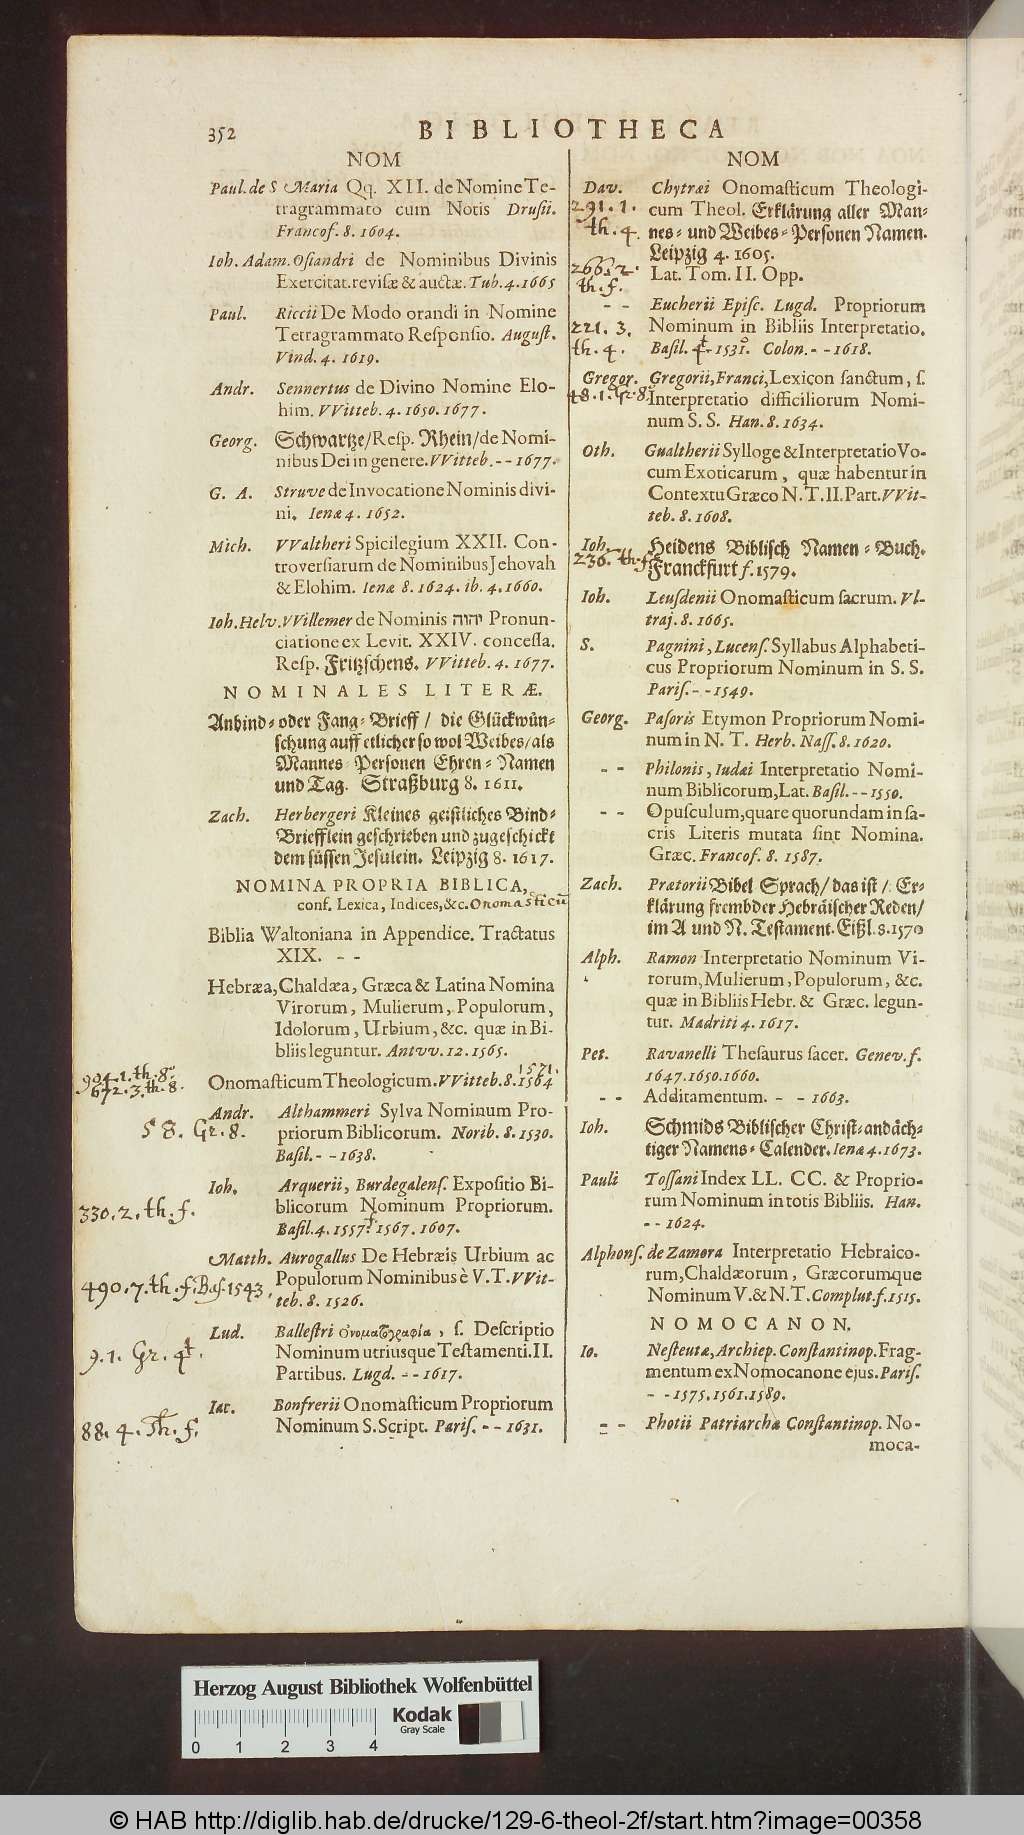 352
BIBLIOTHECA
NOM
Paul. de S Maria Qq. XII. de Nomine Te-
tragrammato cum Notis Drusii.
Francof. 8. 1604.
Ioh. Adam. Osiandri de Nominibus Divinis
Exercitat. revisæ & auctæ. Tub. 4. 1665
Paul. Riccii De Modo orandi in Nomine
Tetragrammato Responsio. August.
Vind. 4. 1619.
Andr. Sennertus de Divino Nomine Elo-
him. VVitteb. 4. 1650. 1677.
Georg. Schwartze/Resp. Rhein/de Nomi-
nibus Dei in genere. VVitteb. - - 1677.
G. A. Struve de Invocatione Nominis divi-
ni. Ienæ 4. 1652.
Mich. VValtheri Spicilegium XXII. Con-
troversiarum de Nominibus Jehovah
& Elohim. Ienæ 8. 1624. ib. 4. 1660.
Ioh. Helv. VVillemer de Nominis יהוה Pronun-
ciatione ex Levit. XXIV. concessa.
Resp. Fritzschens. VVitteb. 4. 1677.
NOMINALES LITERÆ.
Anbind- oder Fang-Brieff / die Glückwün-
schung auff etlicher so wol Weibes/als
Mannes Personen Ehren-Namen
und Tag. Straßburg 8. 1611.
Zach. Herbergeri Kleines geistliches Bind-
Briefflein geschrieben und zugeschickt
dem süssen Jesulein. Leipzig 8. 1617.
NOMINA PROPRIA BIBLICA,
conf. Lexica, Indices, &c. Onomasticū
Biblia Waltoniana in Appendice. Tractatus
XIX. - -
Hebræa, Chaldæa, Græca & Latina Nomina
Virorum, Mulierum, Populorum,
Idolorum, Urbium, &c. quæ in Bi-
bliis leguntur. Antvv. 12. 1565.
1571.
904.1.th.8º
672.3.th.8.
Onomasticum Theologicum. VVitteb. 8. 1564
58. Gr. 8.
Andr. Althammeri Sylva Nominum Pro-
priorum Biblicorum. Norib. 8. 1530.
Basil. - - 1638.
330.2.th.f.
Ioh. Arquerii, Burdegalens. Expositio Bi-
blicorum Nominum Propriorum.
Basil. 4. 1557. f 1567. 1607.
490.7.th.f. Bas. 1543.
Matth. Aurogallus De Hebræis Urbium ac
Populorum Nominibus è V. T. VVit-
teb. 8. 1526.
9.1. Gr. 4t.
Lud. Ballestri ὀνοματογραφία, s. Descriptio
Nominum utriusque Testamenti. II.
Partibus. Lugd. - - 1617.
88.4. Th. f.
Iac. Bonfrerii Onomasticum Propriorum
Nominum S. Script. Paris. - - 1631.
NOM
Dav. Chytræi Onomasticum Theologi-
291.1.
th. 4.
cum Theol. Erklärung aller Man-
nes- und Weibes-Personen Namen.
Leipzig 4. 1605.
266.2.
th.f.
Lat. Tom. II. Opp.
- - Eucherii Episc. Lugd. Propriorum
221.3.
th. 4.
Nominum in Bibliis Interpretatio.
Basil. 4t. 1531. Colon. - - 1618.
Gregor. Gregorii, Franci, Lexicon sanctum, s.
48.1. Gr. 8.
Interpretatio difficiliorum Nomi-
num S. S. Han. 8. 1634.
Oth. Gualtherii Sylloge & Interpretatio Vo-
cum Exoticarum, quæ habentur in
Contextu Græco N. T. II. Part. VVit-
teb. 8. 1608.
Ioh. Heidens Biblisch Namen-Buch.
236. th. f.
Franckfurt f. 1579.
Ioh. Leusdenii Onomasticum sacrum. Vl-
traj. 8. 1665.
S. Pagnini, Lucens. Syllabus Alphabeti-
cus Propriorum Nominum in S. S.
Paris. - - 1549.
Georg. Pasoris Etymon Propriorum Nomi-
num in N. T. Herb. Nass. 8. 1620.
- - Philonis, Iudæi Interpretatio Nomi-
num Biblicorum, Lat. Basil. - - 1550.
- - Opusculum, quare quorundam in sa-
cris Literis mutata sint Nomina.
Græc. Francof. 8. 1587.
Zach. Prætorii Bibel Sprach/ das ist / Er-
klärung frembder Hebräischer Reden/
im A und N. Testament. Eißl. 8. 1570
Alph. Ramon Interpretatio Nominum Vi-
rorum, Mulierum, Populorum, &c.
quæ in Bibliis Hebr. & Græc. legun-
tur. Madriti 4. 1617.
Pet. Ravanelli Thesaurus sacer. Genev. f.
1647. 1650. 1660.
- - Additamentum. - - 1663.
Ioh. Schmids Biblischer Christ-andäch-
tiger Namens-Calender. Ienæ 4. 1673.
Pauli Tossani Index LL. CC. & Proprio-
rum Nominum in totis Bibliis. Han.
- - 1624.
Alphons. de Zamora Interpretatio Hebraico-
rum, Chaldæorum, Græcorumque
Nominum V. & N. T. Complut. f. 1515.
NOMOCANON.
Io. Nesteutæ, Archiep. Constantinop. Frag-
mentum ex Nomocanone ejus. Paris.
- - 1575. 1561. 1589.
- - Photii Patriarchæ Constantinop. No-
moca-
Herzog August Bibliothek Wolfenbüttel
Kodak
Gray Scale
0 1 2 3 4
© HAB http://diglib.hab.de/drucke/129-6-theol-2f/start.htm?image=00358